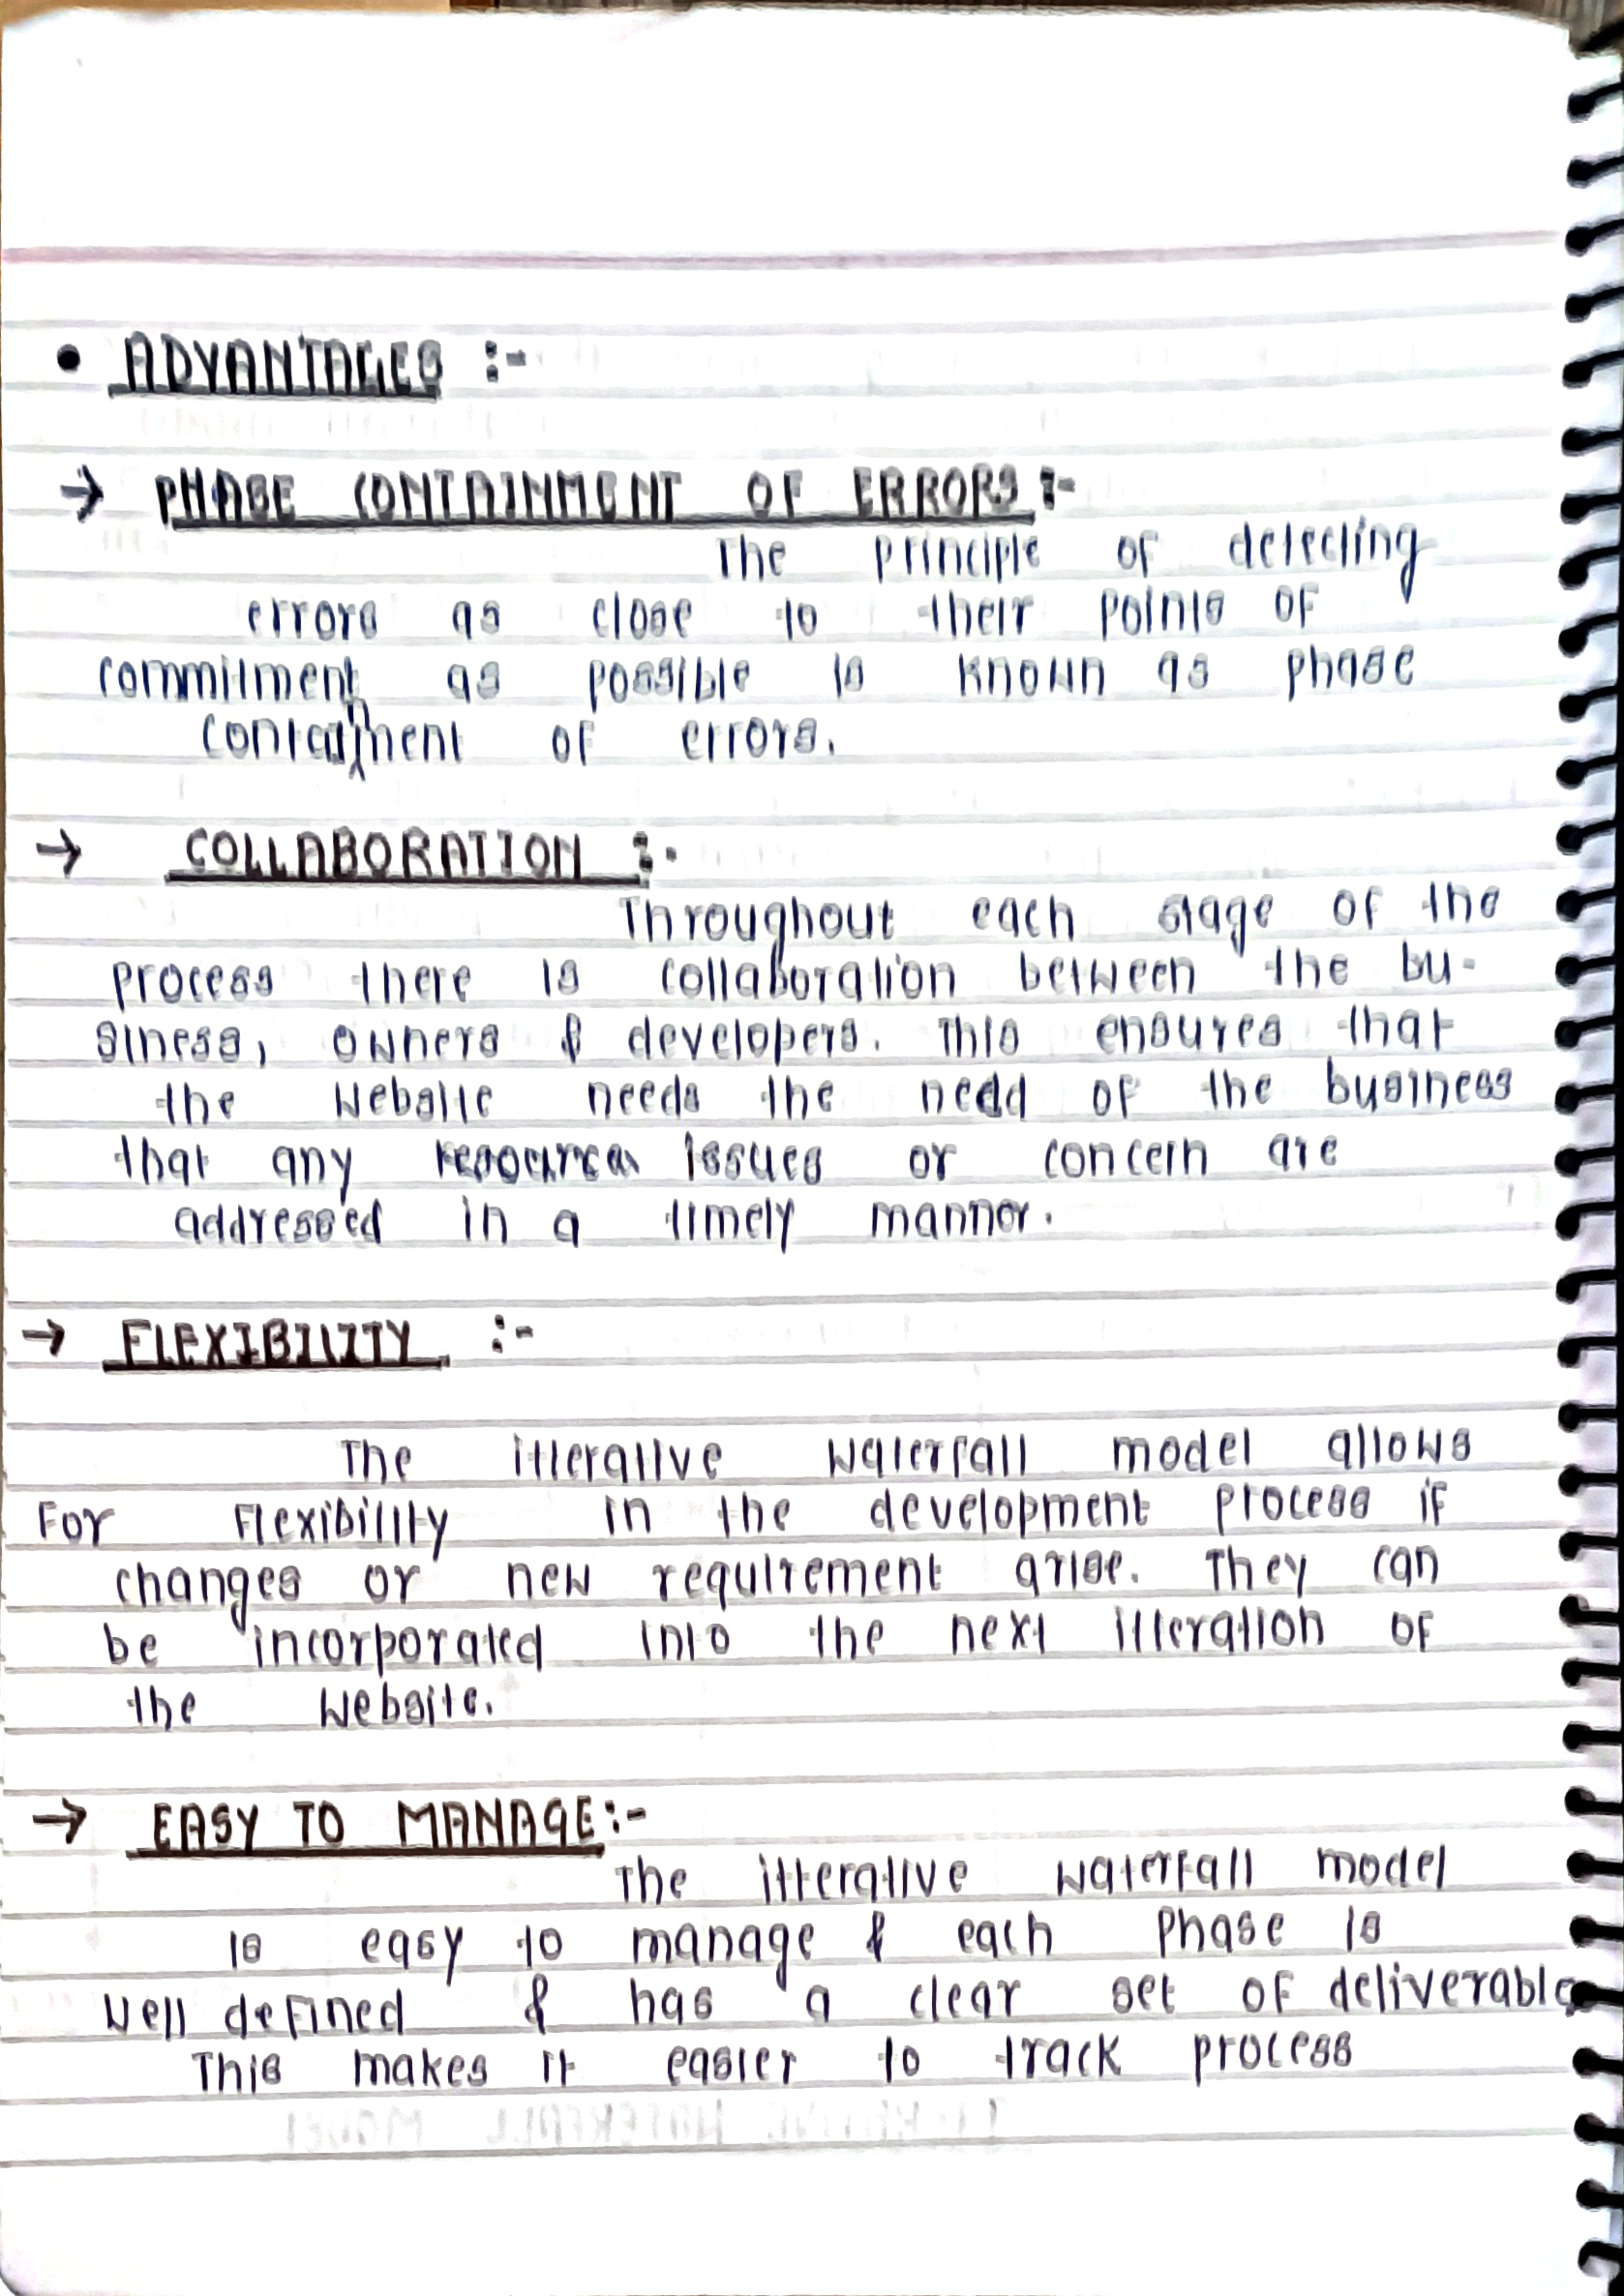 • ADVANTAGES :-
→ PHASE CONTAINMENT OF ERRORS :-
The principle of detecting
errors as close to their points of
commitment as possible is known as phase
containment of errors.
→ COLLABORATION :-
Throughout each stage of the
process there is collaboration between the bu-
siness, owners & developers. This ensures that
the website needs the need of the business
that any issues or concern are
addressed in a timely manner.
→ FLEXIBILITY :-
The itterative waterfall model allows
for flexibility in the development process if
changes or new requirement arise. They can
be incorporated into the next itteration of
the website.
→ EASY TO MANAGE :-
The itterative waterfall model
is easy to manage & each phase is
well defined & has a clear set of deliverable
This makes it easier to track process